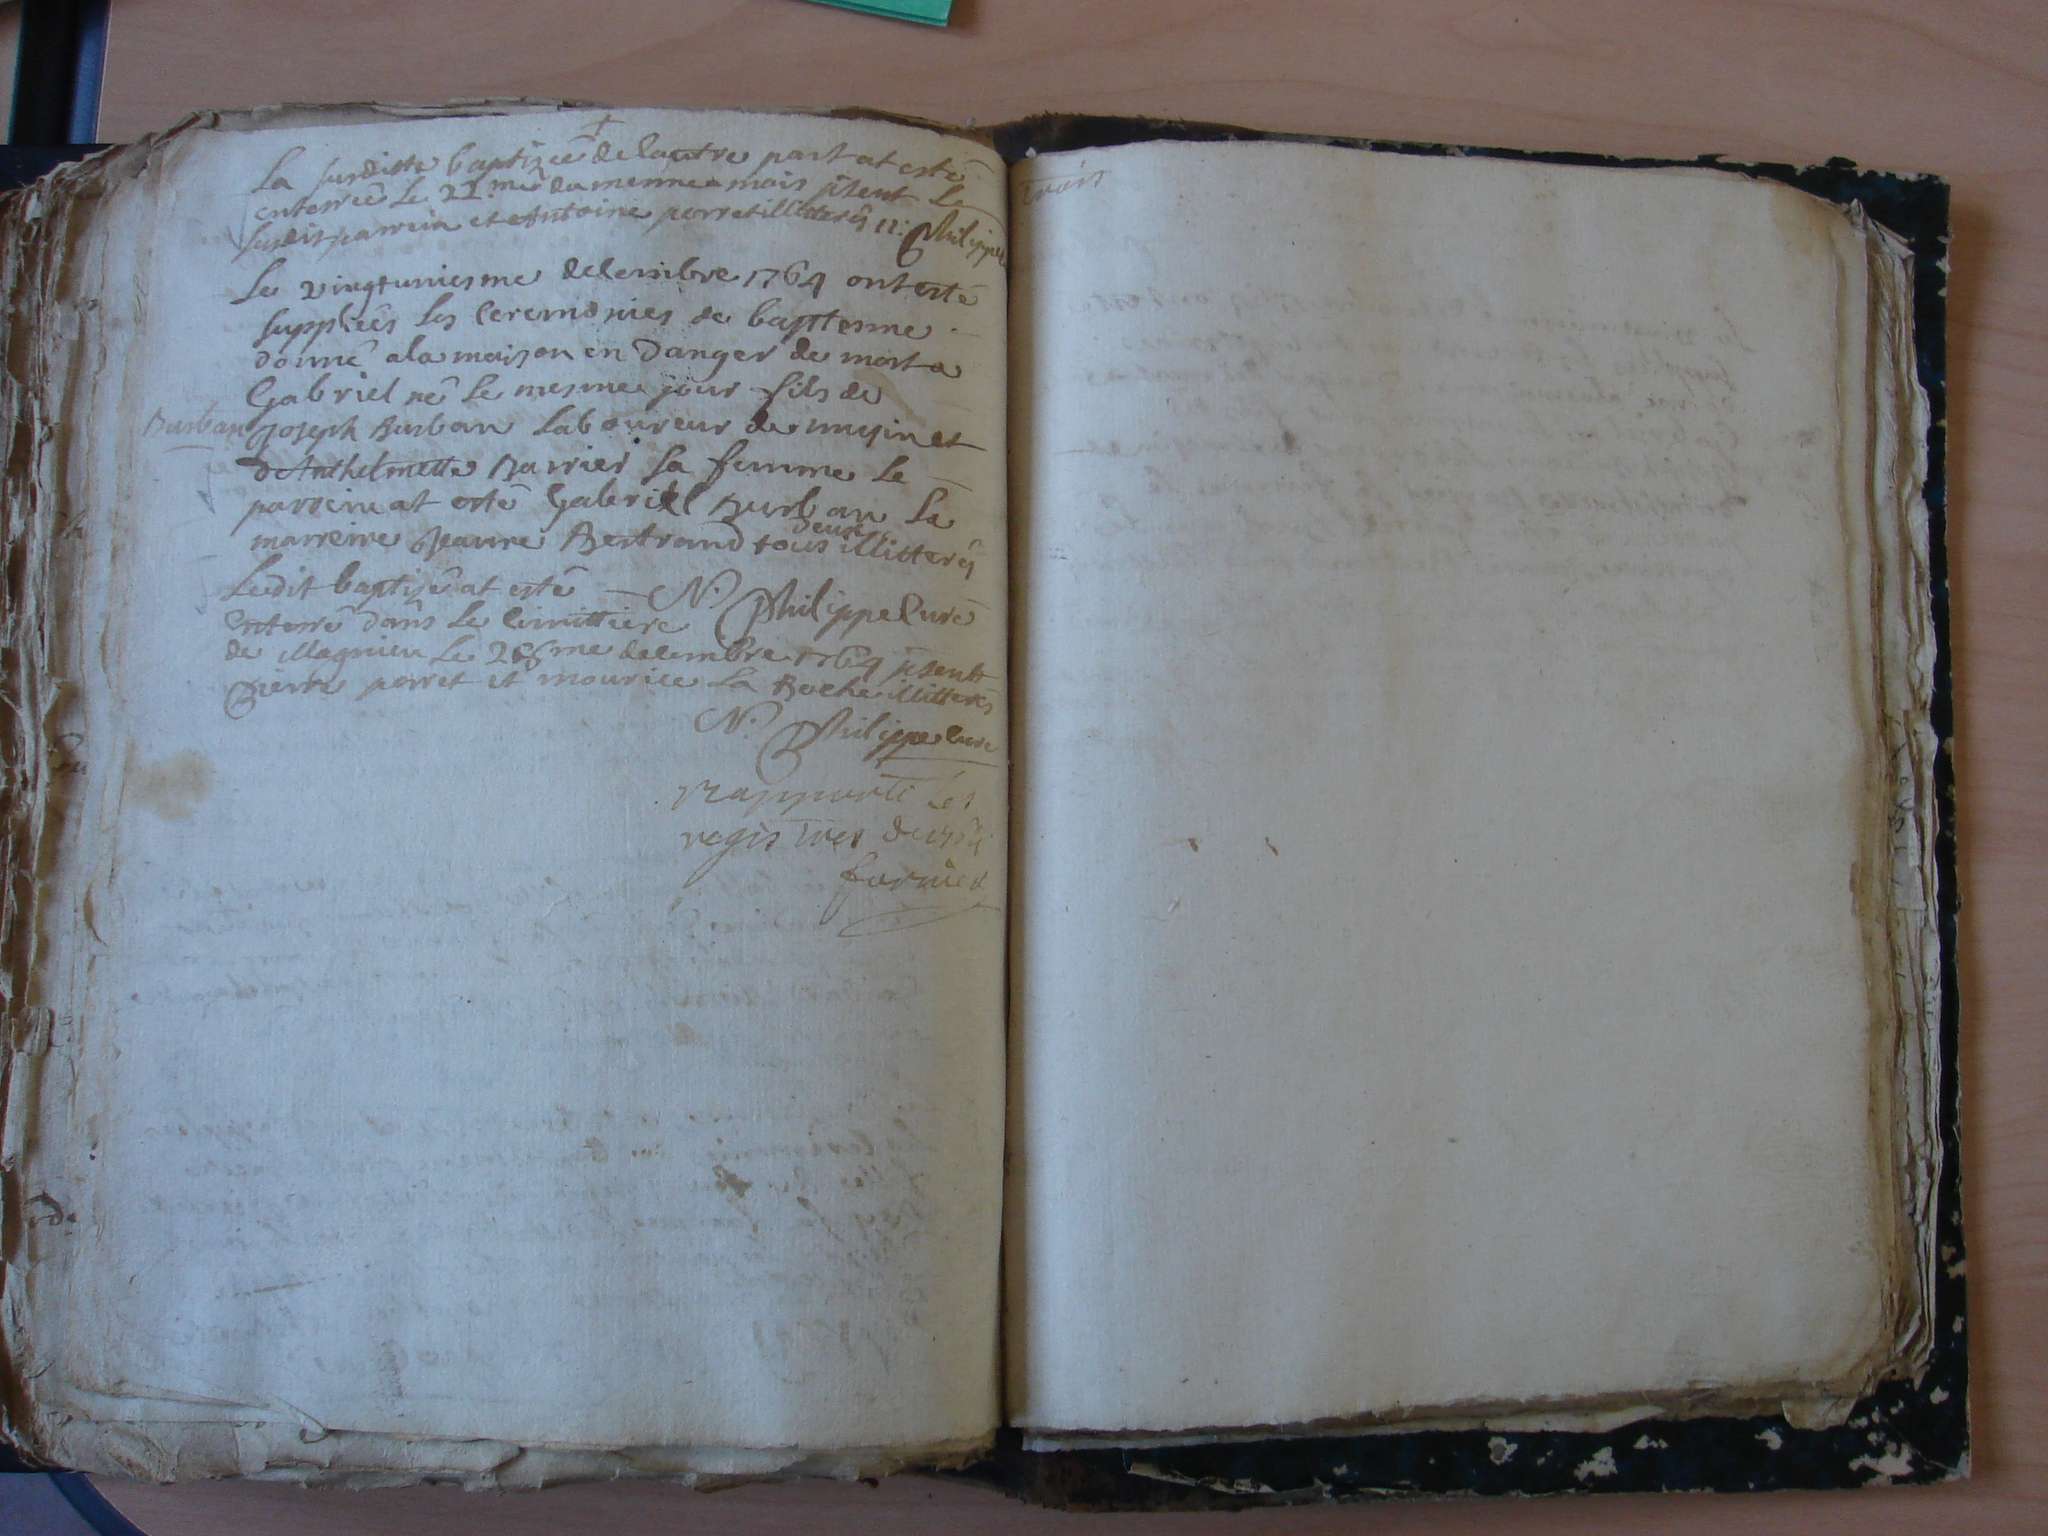 †
La susditte baptizée de lautre part at esté
enterrée le 22.me du mesme mois pñent le
susdit parrein et Antoine perret illitterés N. Philippe
Le vingtuniesme decembre 1764 ont esté
suppléés les ceremonies de baptesme
donné a la maison en danger de mort a
Gabriel né le mesme jour fils de
Burban
Joseph Burban laboureur de musin et
d'Anthelmette Barrier sa femme le
parrein at esté Gabriel Burban la
marreine Jeanne Bertrand tous deux illitterés
Ledit baptisé at esté — N. Philippe Curé
enterré dans le cimittiere
de Magnieu le 26me decembre 1764 pñents
pierre perret et mourice La Roche illitterés
N. Philippe Curé
Rapporté les
registres de 1764
trois